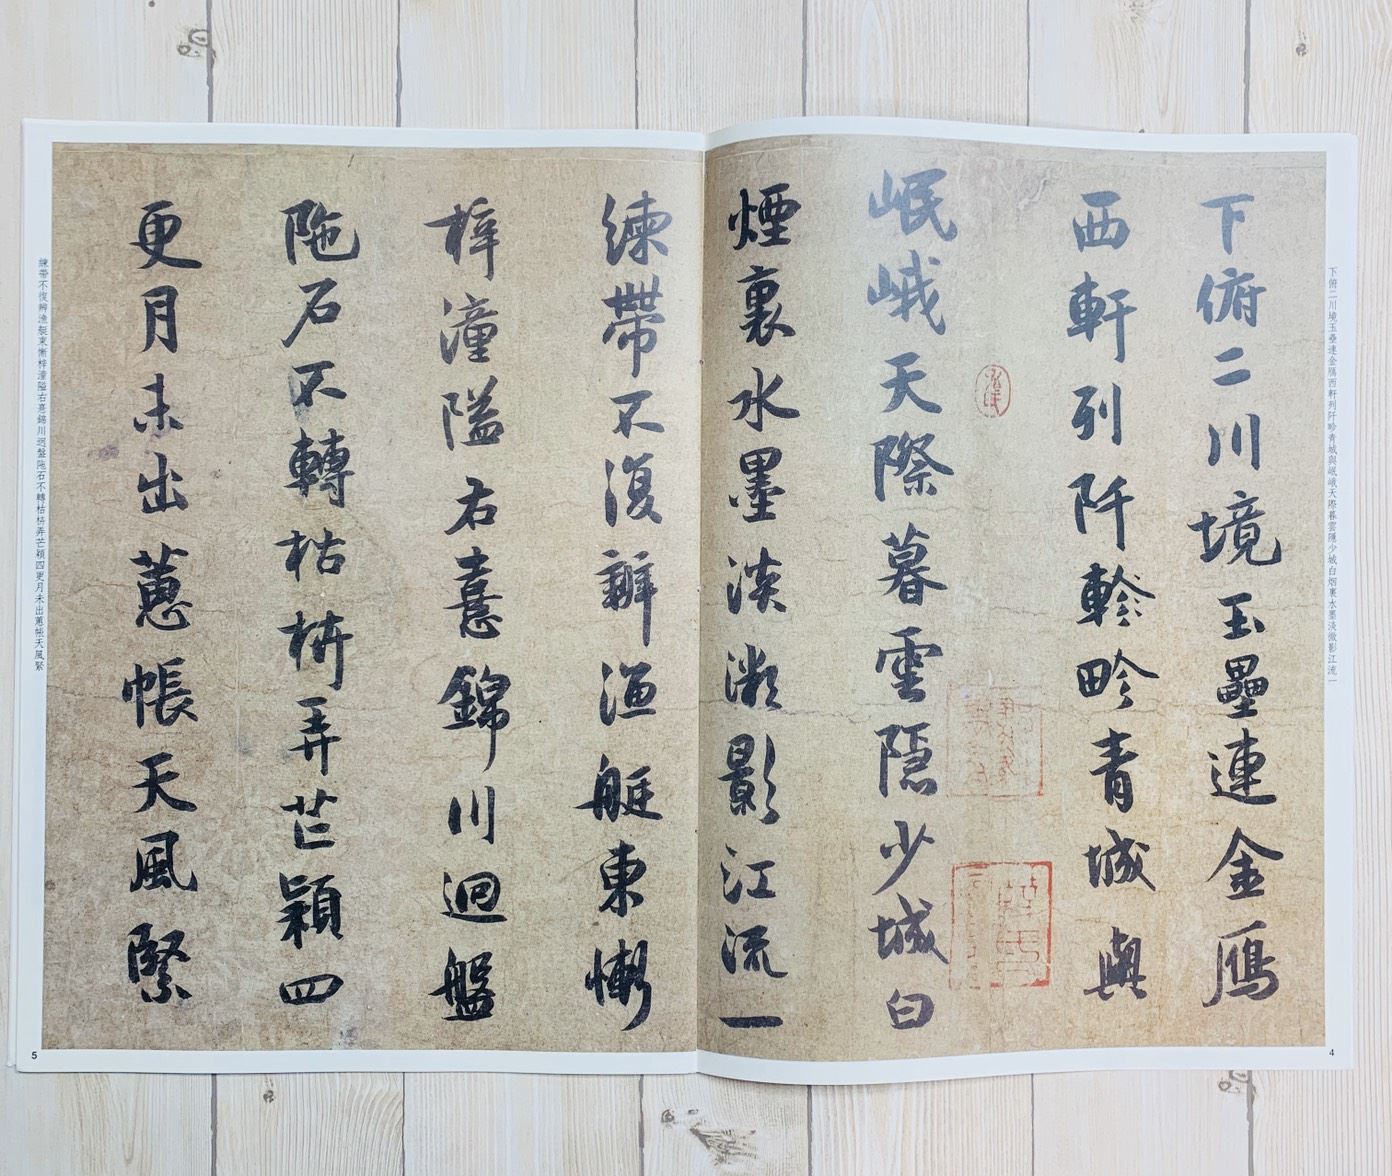 下俯二川境玉壘連金鴈西軒列阡畛青城與岷峨天際暮雲隱少城白烟裏水墨淡微影江流一
下俯二川境玉壘連金鴈
西軒列阡軫畛青城與
岷峨天際暮雲隱少城白
煙裏水墨淡溦影江流一
4
練帶不復辨漁艇東慚
梓潼隘右憙錦川迴盤
陁石不轉枯枿弄芒穎四
更月未出蕙帳天風緊
練帶不復辨漁艇東慚梓潼隘右憙錦川迴盤陁石不轉枯枿弄芒穎四更月未出蕙帳天風緊
5